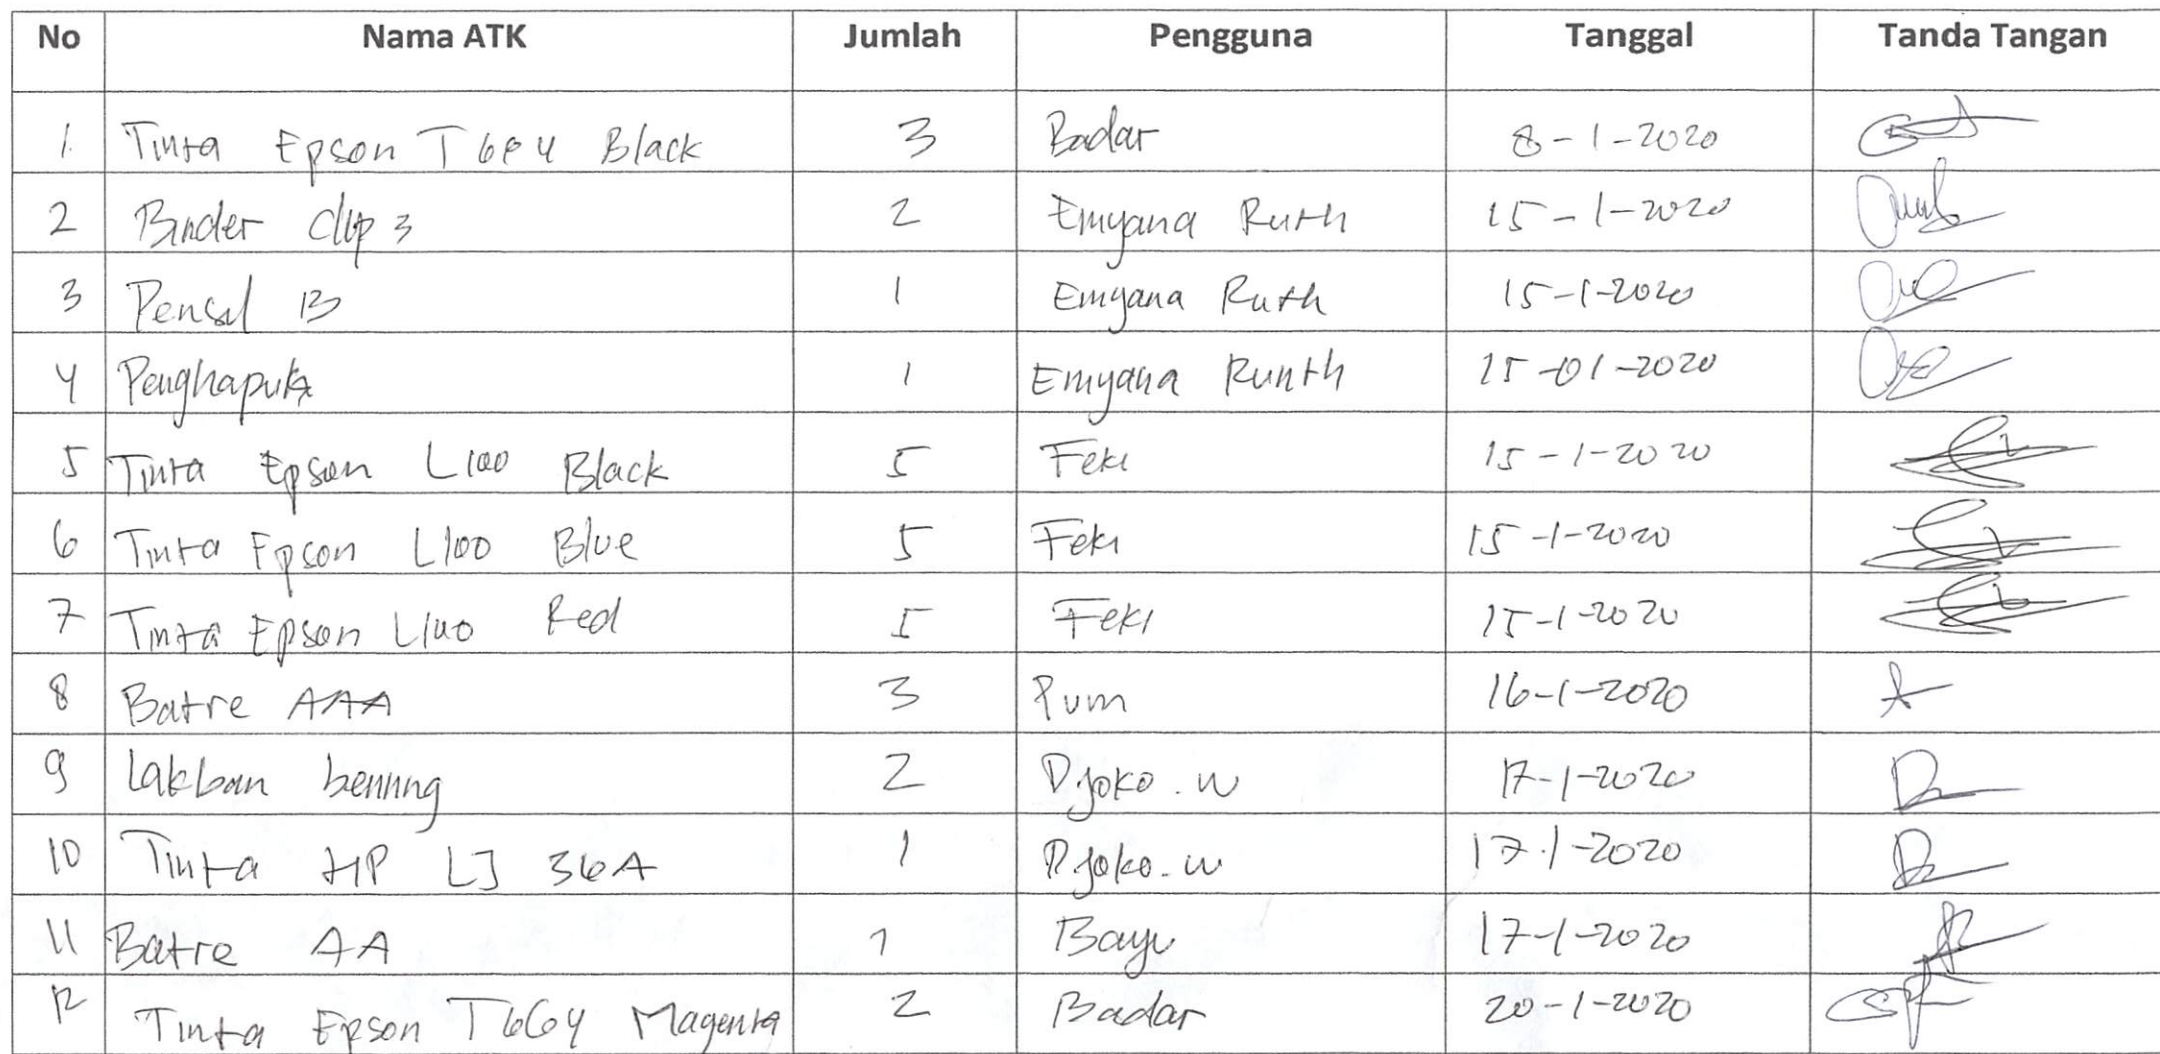 No Nama ATK Jumlah Pengguna Tanggal Tanda Tangan
1. Tinta Epson T664 Black 3 Badar 8-1-2020
2 Binder Clip 3 2 Emyana Ruth 15-1-2020
3 Pensil B 1 Emyana Ruth 15-1-2020
4 Penghapus 1 Emyana Runth 15-01-2020
5 Tinta Epson L100 Black 5 Feki 15-1-2020
6 Tinta Epson L100 Blue 5 Feki 15-1-2020
7 Tinta Epson L100 Red 5 Feki 15-1-2020
8 Batre AAA 3 Pum 16-1-2020
9 Lakban bening 2 Djoko.w 17-1-2020
10 Tinta HP LJ 36A 1 Djoko.w 17-1-2020
11 Batre AA 1 Bayu 17-1-2020
12 Tinta Epson T664 Magenta 2 Badar 20-1-2020